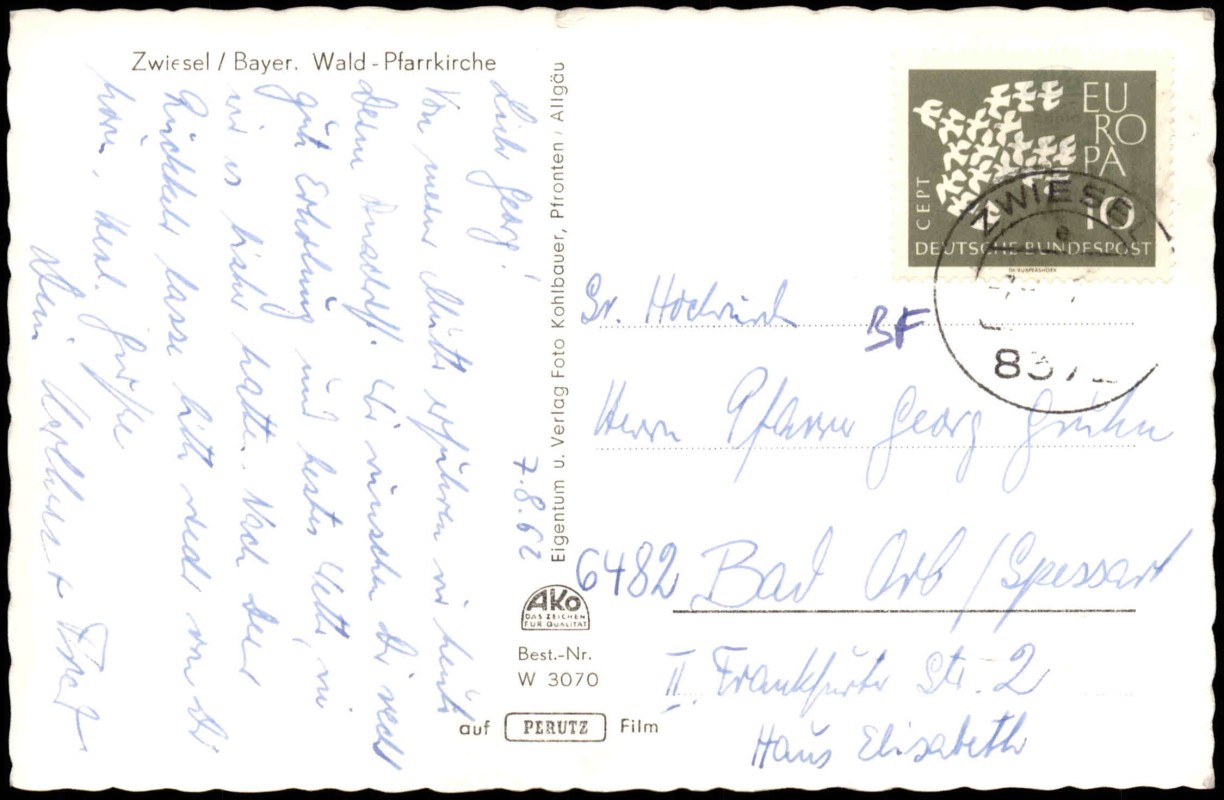 Zwiesel / Bayer. Wald - Pfarrkirche
7.8.62
Lieber Georg!
Von meiner Mutter erfuhren wir heute
Deine Anschrift. Wir wünschen Dir recht
gute Erholung und bestes Wetter, wie
wir es bisher hatten. Nach der
Rückkehr lasse bitte wieder von Dir
hören. Herzl. Grüße
Dein
Eigentum u. Verlag Foto Kohlbauer, Pfronten / Allgäu
AKO
DAS ZEICHEN
FÜR QUALITÄT
Best.-Nr.
W 3070
auf PERUTZ Film
EU
RO
PA
CEPT
10
DEUTSCHE BUNDESPOST
ZWIESEL
e
837
Sr. Hochwürden
BF
Herrn Pfarrer Georg
6482 Bad Orb / Spessart
II. Frankfurter Str. 2
Haus Elisabeth